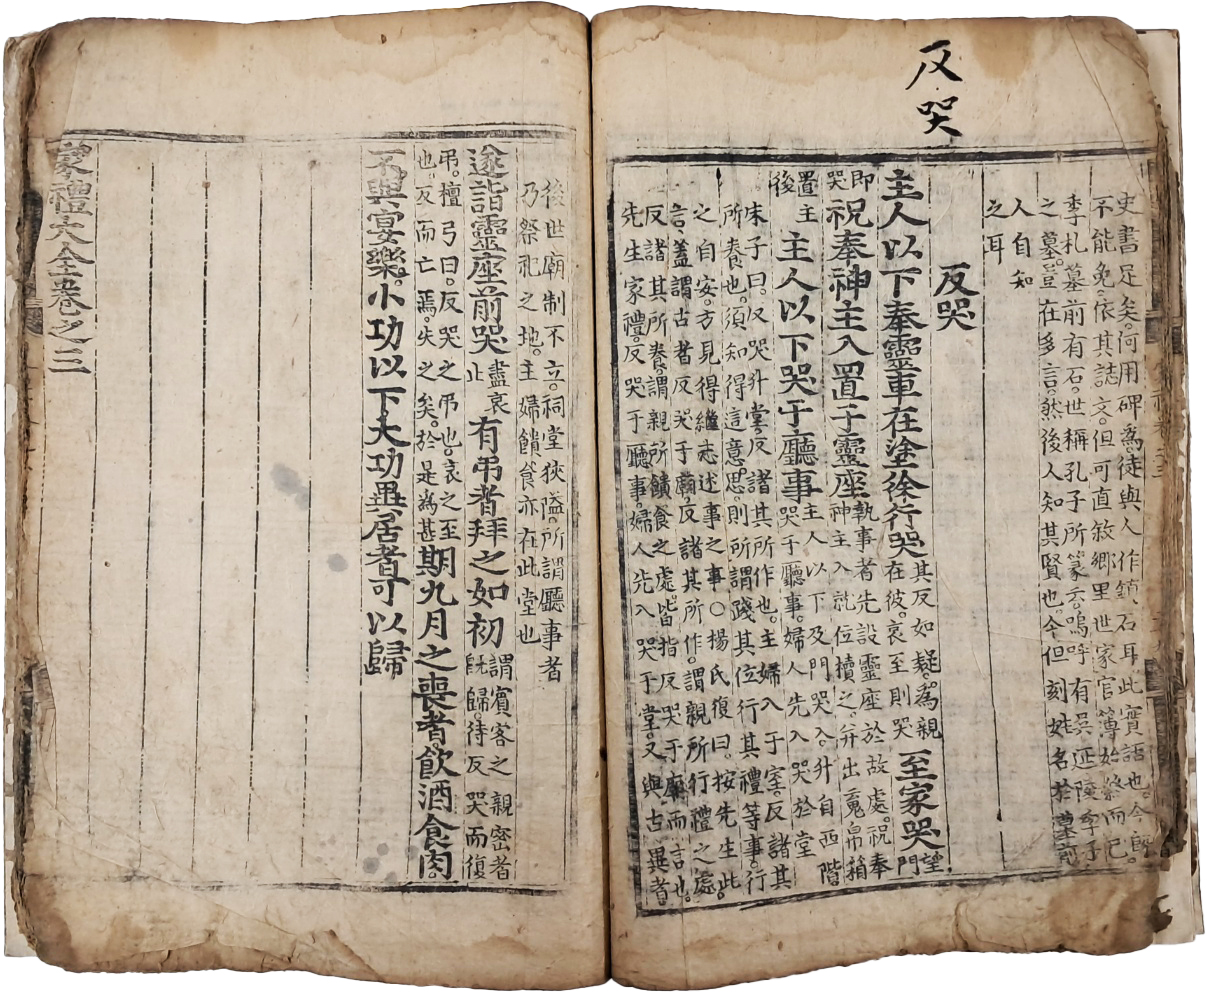 反哭
史書足矣。何用碑爲。徒與人作鎮石耳此實語也。今旣
不能免。依其誌文。但可直敘鄉里世家官簿始終而已。
季札墓前有石。世稱孔子所篆云。嗚呼有吳延陵季子
之墓。豈在多言。然後人知其賢也。今但刻姓名於墓前
人自知
之耳
反哭
主人以下奉靈車在塗徐行哭其反如疑。爲親
在彼。哀至則哭至家哭望
門
即
哭祝奉神主入置于靈座執事者先設靈座於故處。祝奉
神主入就位櫝之。幷出魂帛箱
置主
後主人以下哭于廳事主人以下及門哭入。升自西階
哭于廳事。婦人先入哭於堂
朱子曰。反哭升堂。反諸其所作也。主婦入于室。反諸其
所養也。須知得這意思。則所謂踐其位行其禮等事。行
之自安。方見得繼志述事之事○楊氏復曰。按先生此
言。蓋謂古者反哭于廟。反諸其所作。謂親所行禮之處
反諸其所養。謂親所饋食之處。皆指反哭于廟而言也。
先生家禮。反哭于廳事。婦人先入哭于堂。又與古異者。
後世廟制不立。祠堂狹隘。所謂廳事者
乃祭祀之地。主婦饋食亦在此堂也
遂詣靈座前哭盡哀
止有弔者拜之如初謂賓客之親密者
旣歸。待反哭而復
弔。檀弓曰。反哭之弔也。哀之至
也。反而亡焉。失之矣。於是爲甚期九月之喪者飲酒食肉。
不與宴樂。小功以下大功異居者可以歸
家禮大全卷之三